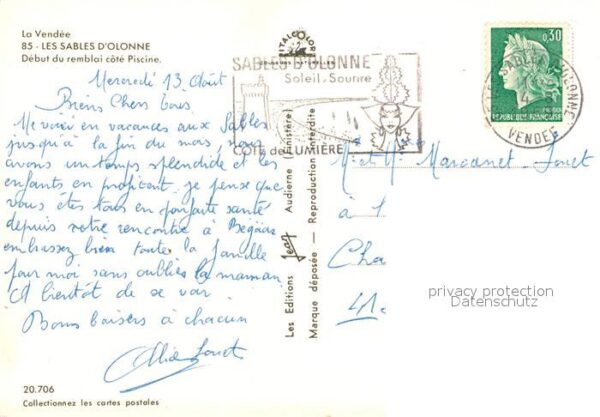 La Vendée
85 - LES SABLES D'OLONNE
Début du remblai côté Piscine.
ITALCOLOR
SABLES D'OLONNE
Soleil Sourire
CÔTE de LUMIÈRE
0,30
REPUBLIQUE FRANÇAISE
OLONNE
VENDEE
Mercredi 13 Août
Biens Chers tous
Me voici en vacances aux Sables
jusqu'à la fin du mois, nous
avons un temps splendide et les
enfants en profitent. je pense que
vous êtes tous en parfaite santé
depuis notre rencontre à
embrassez bien toute la famille
pour moi sans oublier la maman
A bientôt de se voir
Bons baisers à chacun
Les Editions Jean Audierne (Finistère)
Marque déposée - Reproduction interdite
Mr et Me
à 1
Cha
41
privacy protection
Datenschutz
20.706
Collectionnez les cartes postales